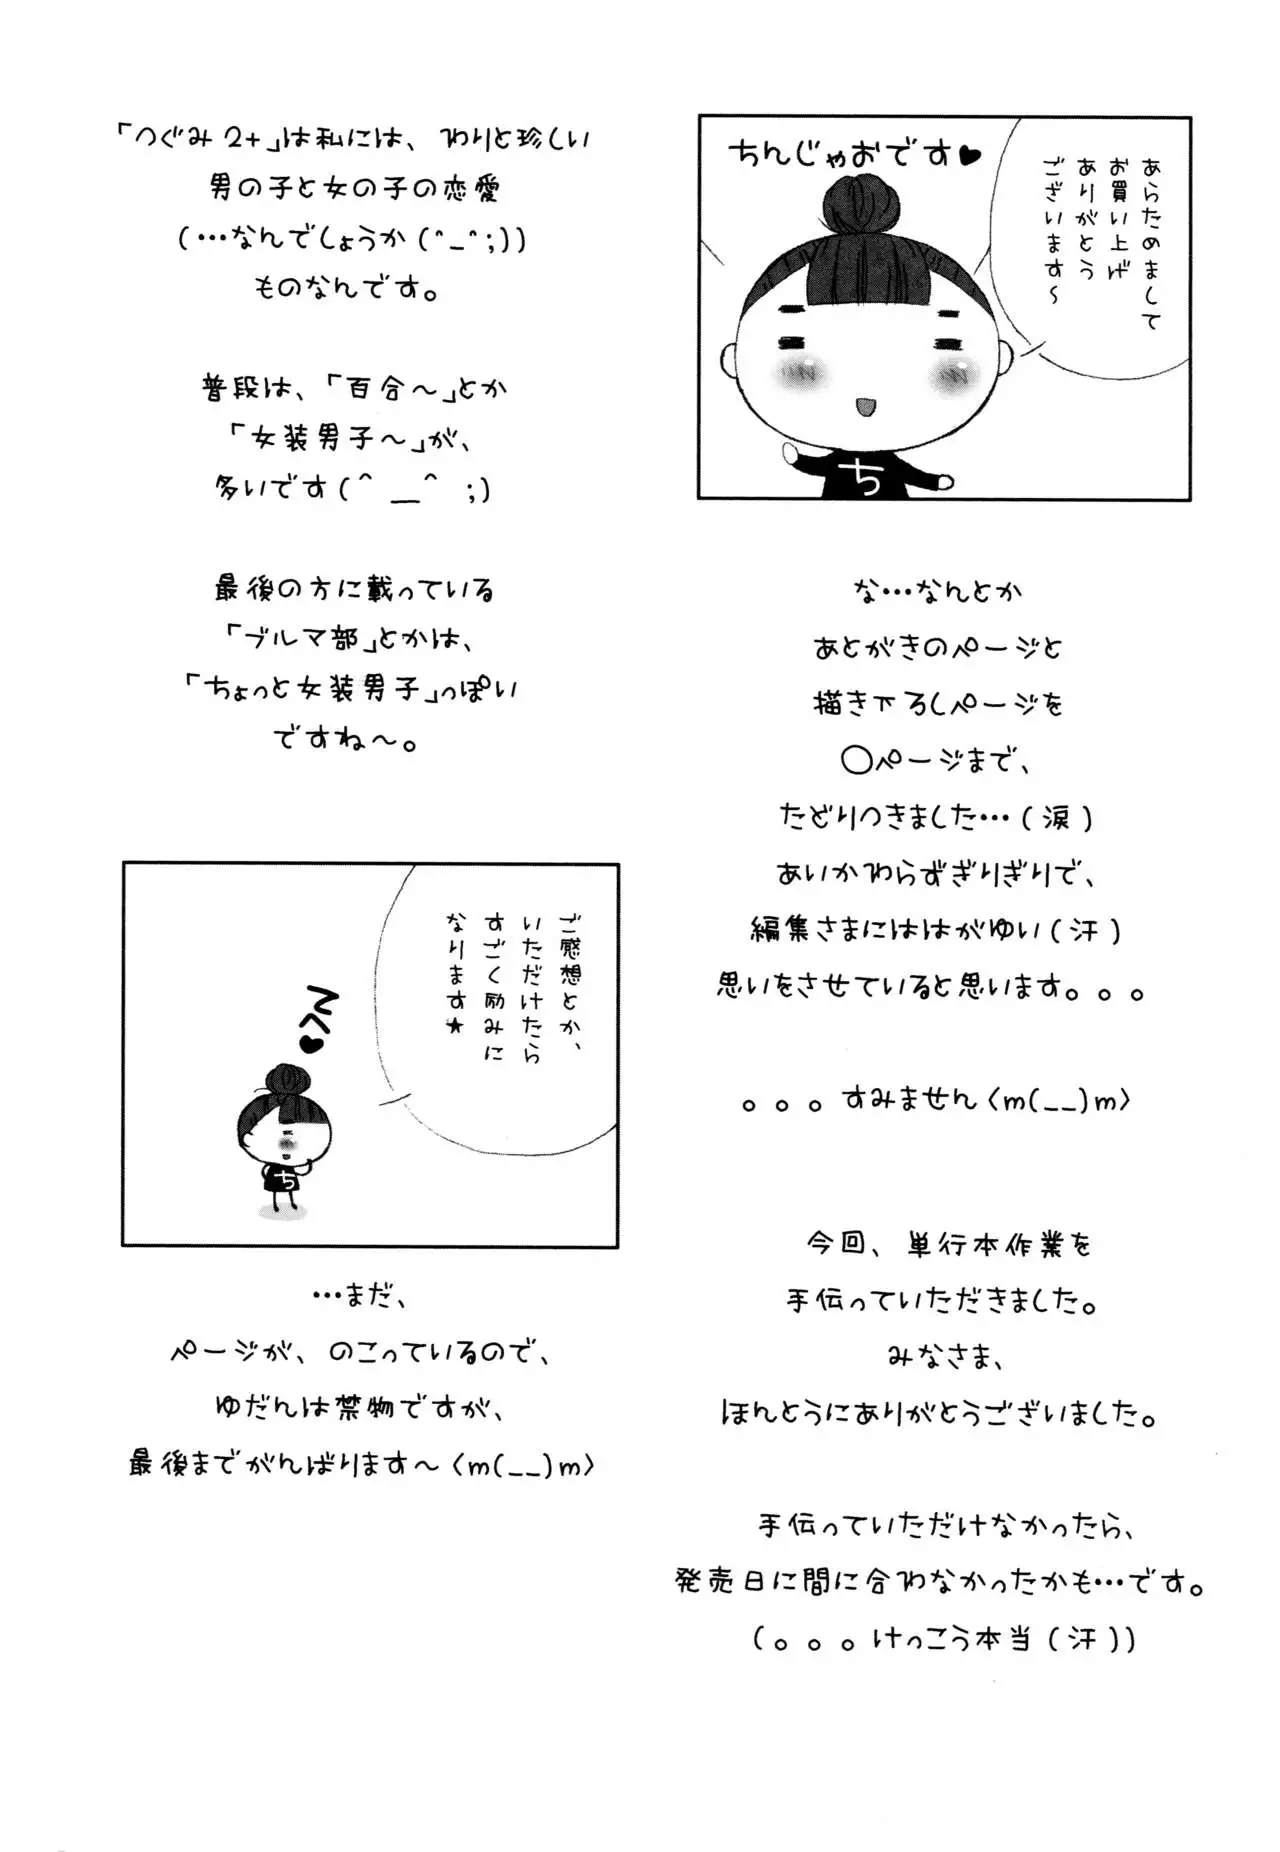 ちんじゃおです♥
あらためまして
お買い上げ
ありがとう
ございます～
ち
な…なんとか
あとがきのページと
描き下ろしページを
○ページまで、
たどりつきました…(涙)
あいかわらずぎりぎりで、
編集さまにははがゆい(汗)
思いをさせていると思います。。。
。。。すみません〈m(__)m〉
今回、単行本作業を
手伝っていただきました。
みなさま、
ほんとうにありがとうございました。
手伝っていただけなかったら、
発売日に間に合わなかったかも…です。
(。。。けっこう本当(汗))
「つぐみ2+」は私には、わりと珍しい
男の子と女の子の恋愛
(…なんでしょうか(^_^;))
ものなんです。
普段は、「百合～」とか
「女装男子～」が、
多いです(^__^ ;)
最後の方に載っている
「ブルマ部」とかは、
「ちょっと女装男子」っぽい
ですね～。
ご感想とか、
いただけたら
すごく励みに
なります★
ち
…まだ、
ページが、のこっているので、
ゆだんは禁物ですが、
最後までがんばります～〈m(__)m〉